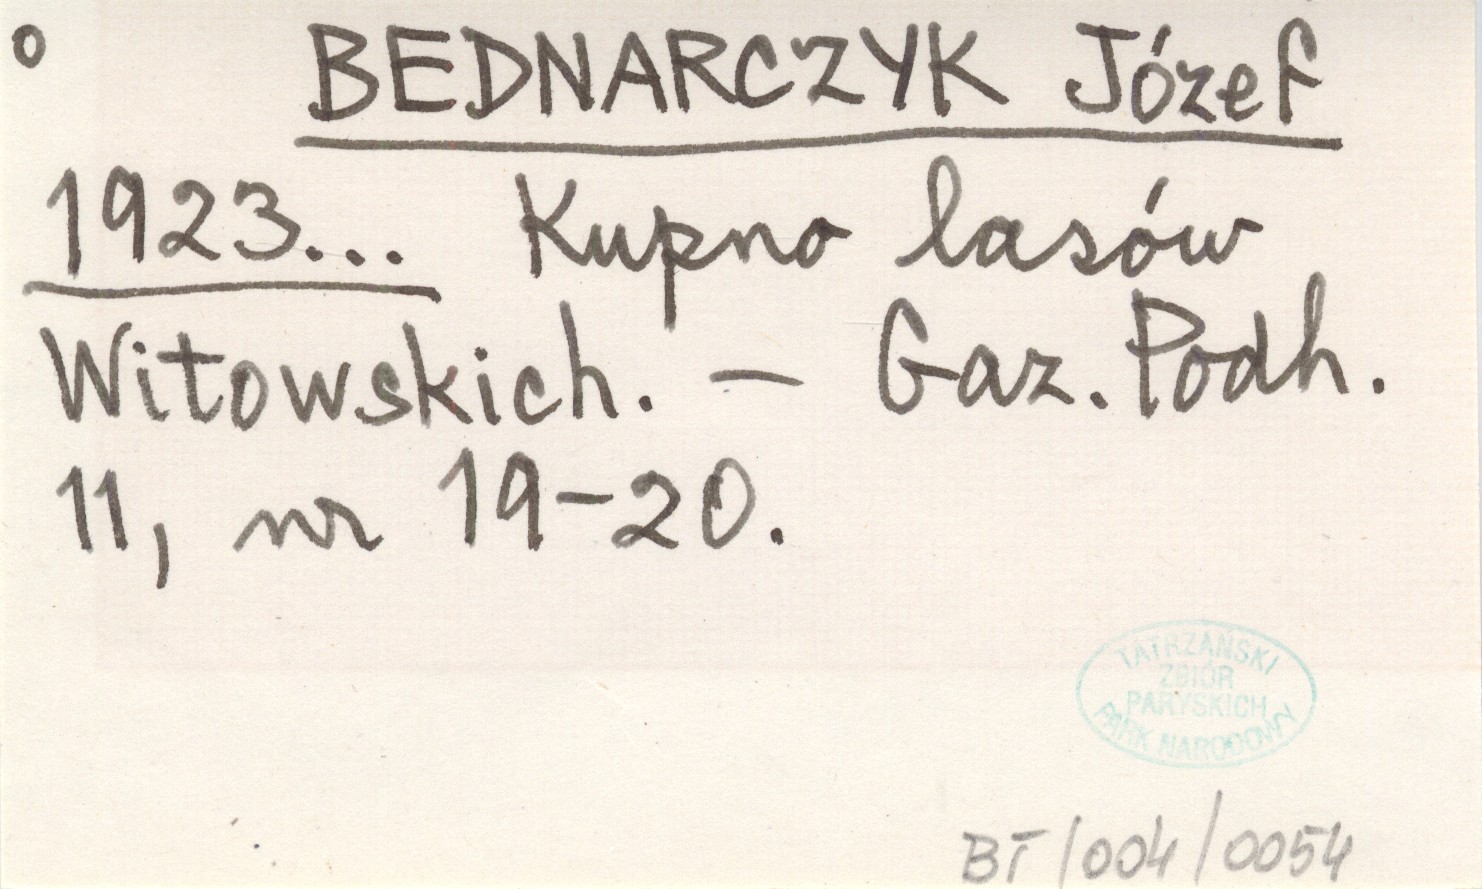 o BEDNARCZYK Józef
1923... Kupno lasów
Witowskich. — Gaz. Podh.
11, nr 19-20.
TATRZAŃSKI
ZBIÓR
PARYSKICH
PARK NARODOWY
BT/004/0054